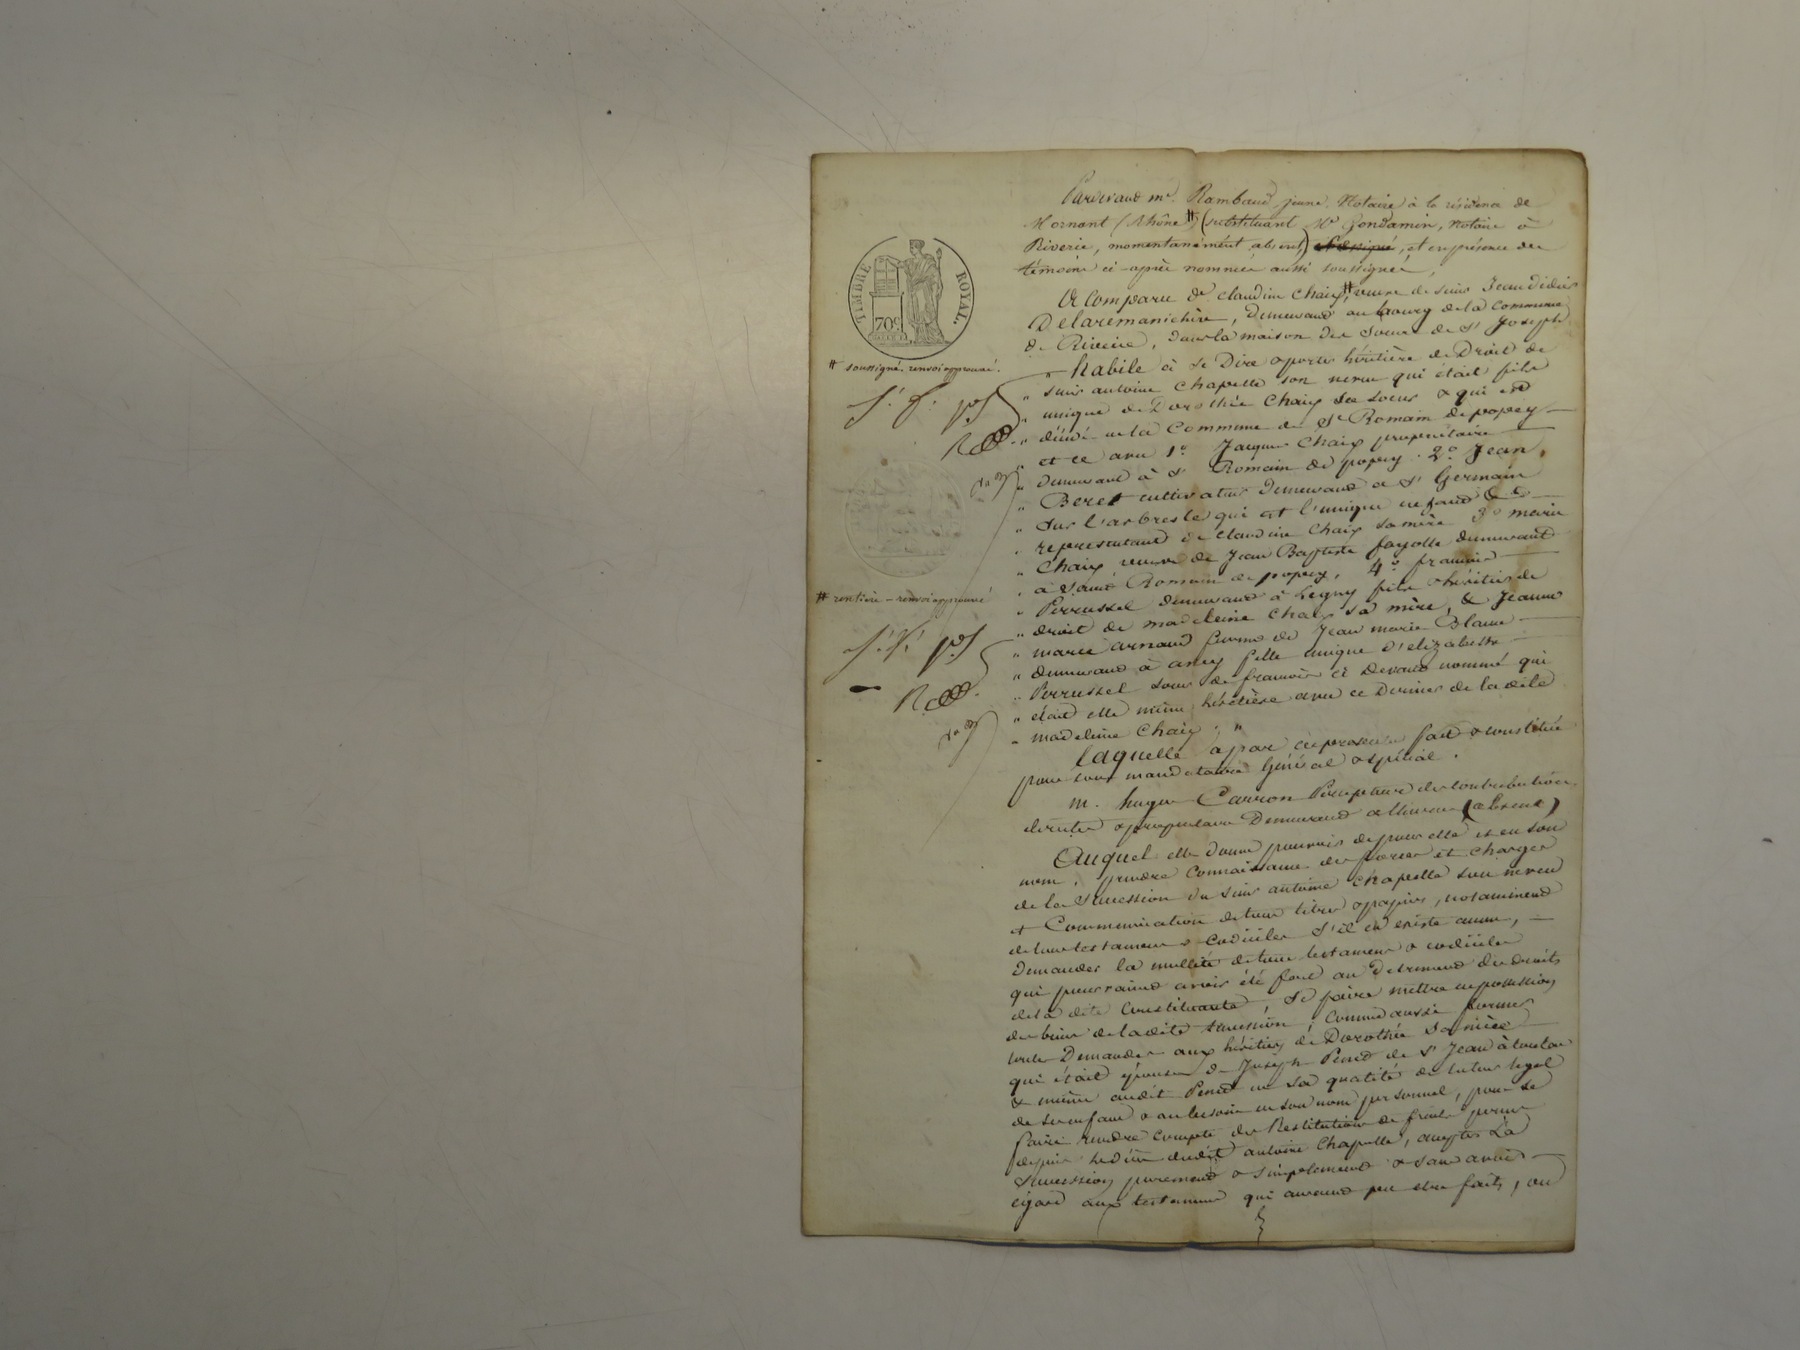 Pardevant me. Rambaud jeune Notaire à la résidence de
Mornant (Rhône # (substituant Me Gondamin, notaire à
Riverie, momentanément absent) soussigné, et en présence des
témoins ci-après nommés aussi soussignés,
A Comparu de claudine Chaix, # veuve de sieur Jean didier
Delaremanichère, demeurant au bourg de la Commune
de Riverie, dans la maison des soeurs de St Joseph
TIMBRE ROYAL.
70c
# soussigné. renvoi approuvé.
" habile à se Dire & porter héritière de Droit de
" sieur antoine Chapelle son neveu qui était fils
" unique de Dorothée Chaix sa soeur & qui est
" décédé en la Commune de St Romain de popey
" et ce avec 1° Jacques Chaix propriétaire
" demeurant à St Romain de popey. 2° Jean
" Beret cultivateur demeurant à St Germain
" sur l'arbresle qui est l'unique enfant &
" représentant de claudine Chaix sa mère 3° marie
" Chaix veuve de Jean Baptiste fayolle demeurant
" à Saint Romain de popey, 4° francois
# rentière - renvoi approuvé
" Perrussel demeurant à Legny fils & héritier de
" droit de madeleine Chaix sa mère, & Jeanne
" marie arnaud femme de Jean marie Blanc
" demeurant à ancy fille unique d'elizabeth
" Perrussel soeur de francois ci devant nommé qui
" était elle même héritière avec ce dernier de la dite
" madeleine Chaix. "
Laquelle a par ces présentes fait & constitué
pour son mandataire Général & spécial.
m. hugues Carron Percepteur des contributions
directes & propriétaire Demeurant à (absent)
Auquel elle donne pouvoir de pour elle et en son
nom, prendre connaissance des forces et charges
de la succession du sieur antoine Chapelle son neveu
et Communication de tous titres & papiers, notamment
de tous testamens & codiciles s'il en existe aucun,
Demander la nullité de tous testamens & codiciles
qui pourraient avoir été fait au détriment des droits
de la dite Constituante, se faire mettre en possession
des biens de la dite succession, comme aussi former
toutes Demandes aux héritiers de Dorothée sa mère
qui était épouse de Joseph Penet de St Jean à toulas
& même audit Penet en sa qualité de tuteur légal
de ses enfans & au besoin en son nom personnel, pour se
faire rendre compte des Restitutions de fruits perçus
depuis le décès dudit antoine Chapelle, accepter La
succession purement & simplement & sans avoir
égard aux testamens qui auraient peu être faits, ou